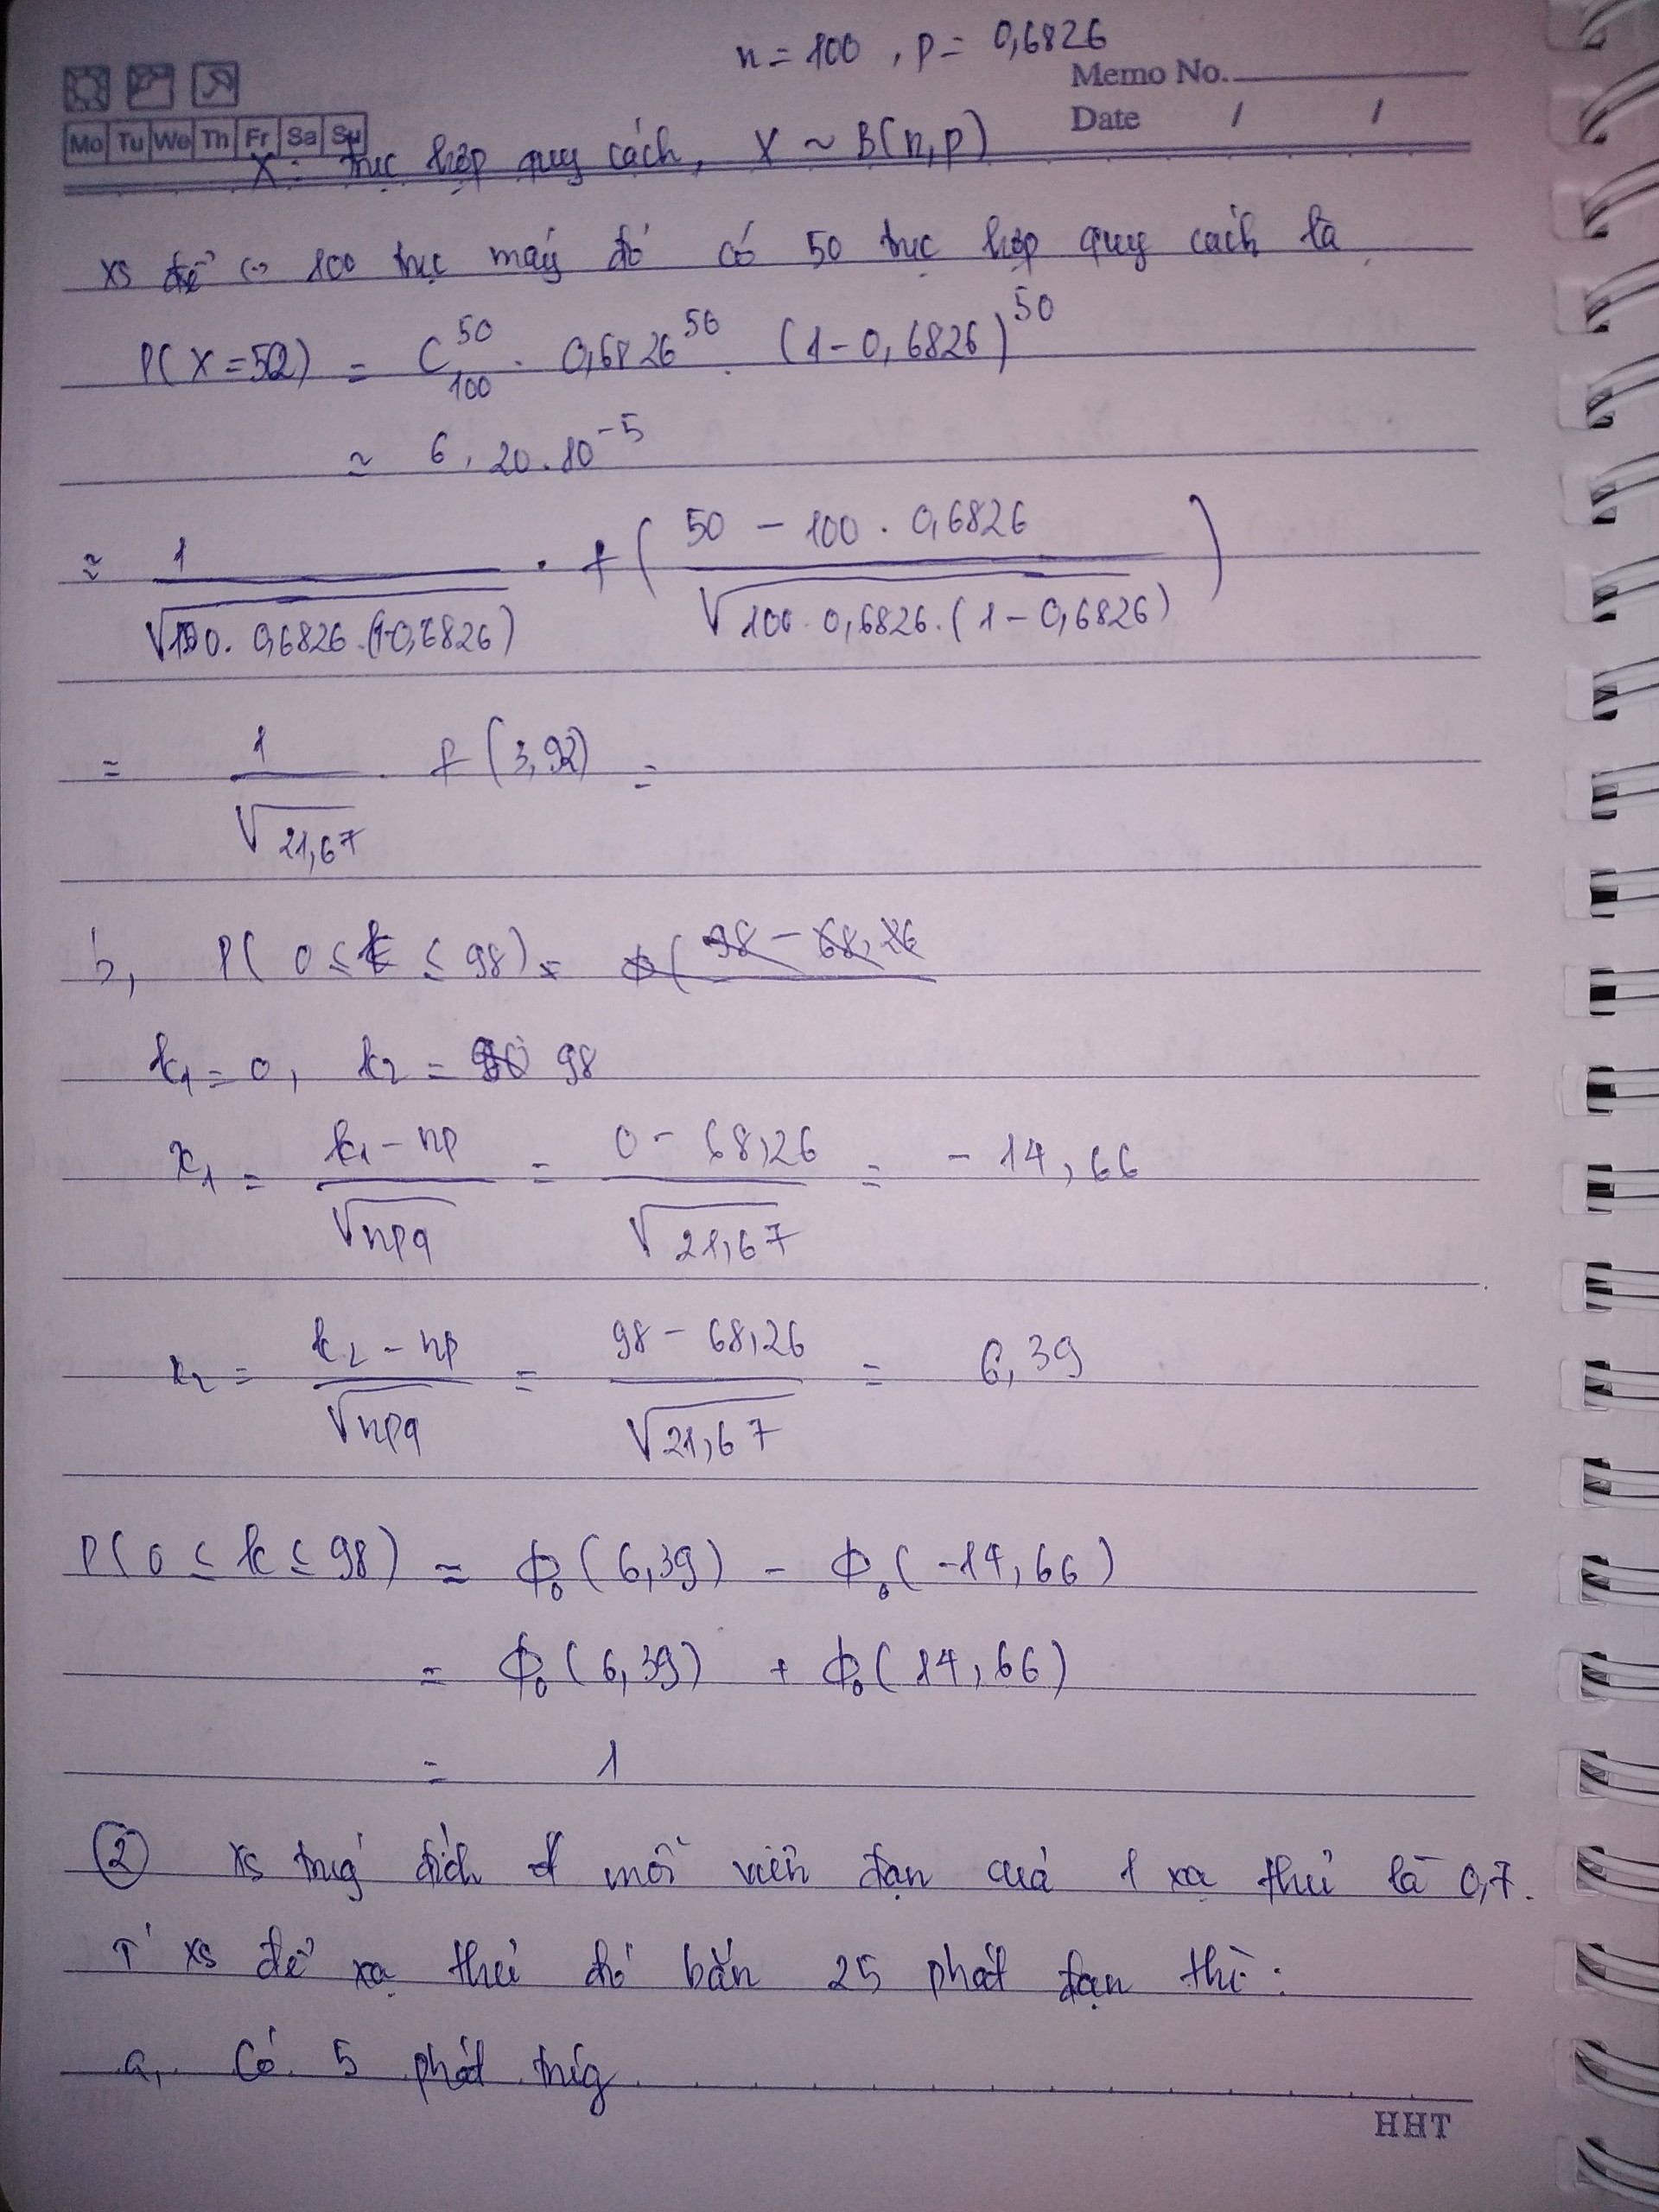 n = 100 , p = 0,6826
Memo No.
Mo Tu We Th Fr Sa Su
Date / /
X : trục hợp quy cách, X ~ B(n,p)
xs để có 100 trục máy đó có 50 trục hợp quy cách là
P(X=50) = C_{100}^{50} . 0,6826^{50} . (1-0,6826)^{50}
≈ 6,20.10^{-5}
≈ 1/√(100. 0,6826.(1-0,6826)) . f( (50 - 100 . 0,6826)/√(100.0,6826.(1-0,6826)) )
= 1/√21,67 . f(3,92) =
b, P( 0 ≤ k ≤ 98) = Φ( 98 - 68,26
k₁ = 0, k₂ = 98
x₁ = (k₁ - np)/√npq = (0 - 68,26)/√21,67 = - 14,66
x₂ = (k₂ - np)/√npq = (98 - 68,26)/√21,67 = 6,39
P( 0 ≤ k ≤ 98) = Φ₀(6,39) - Φ₀(-14,66)
= Φ₀(6,39) + Φ₀(14,66)
= 1
② xs trúg đích mỗi viên đạn của 1 xạ thủ là 0,7.
T' xs để xạ thủ đó bắn 25 phát đạn thì :
a, Có 5 phát trúg
HHT